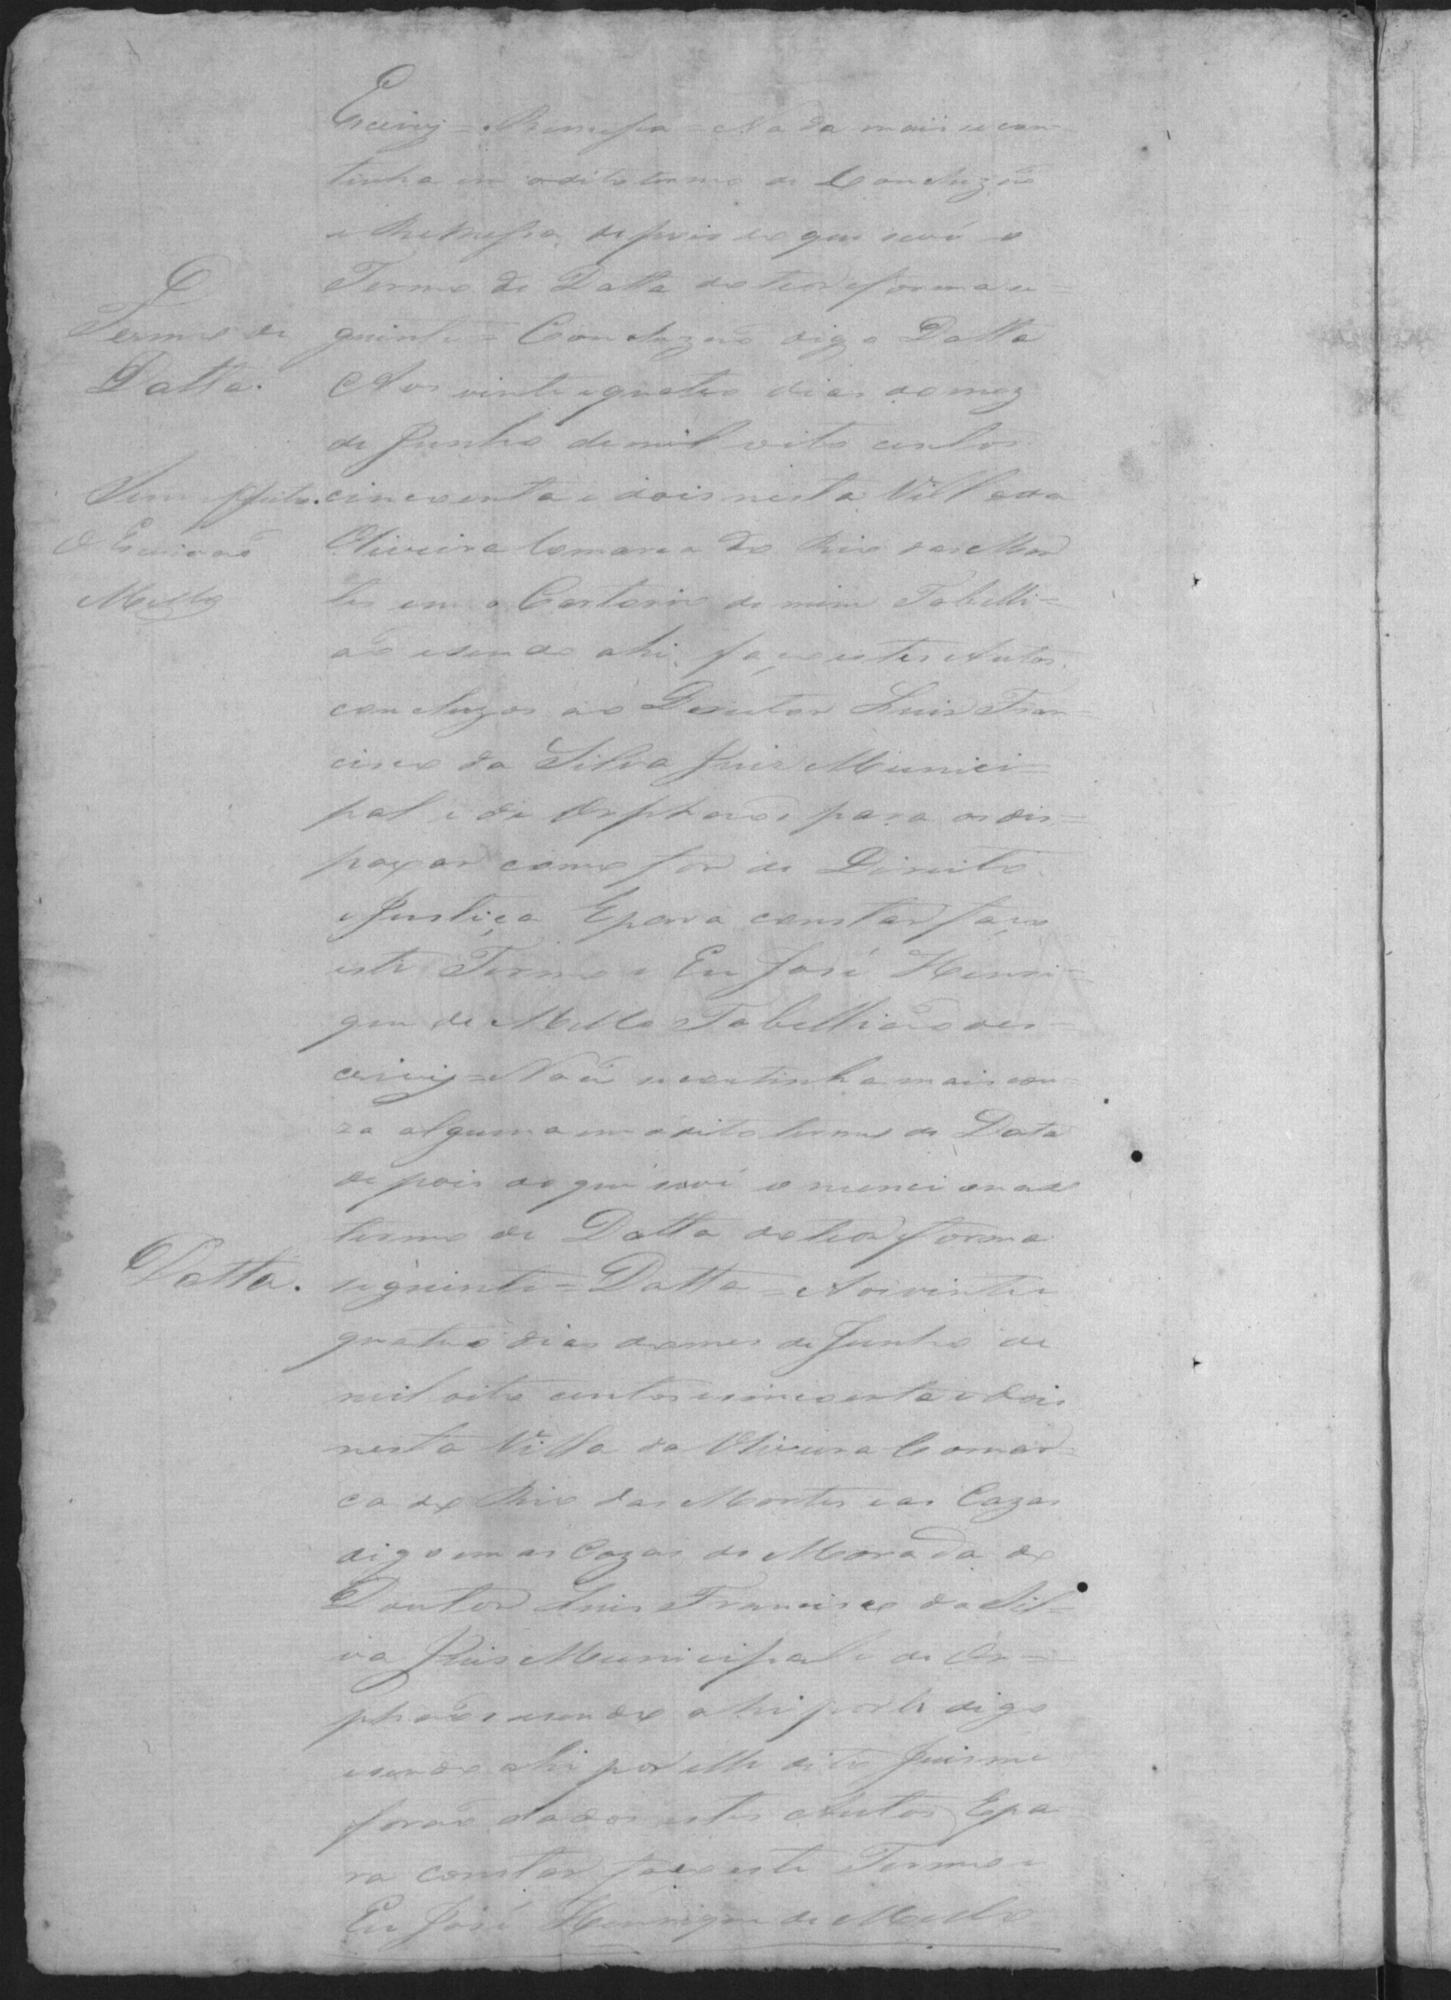 Escrivy = Remessa = Nada mais se con-
tinha em o dito termo de Concluzão
e Remessa, depois do que se vê o
Termo de Datta do teor e forma se=
guinte = Concluzão digo Datta
Termo de
Datta.
Aos vinte e quatro dias do mez
de Junho de mil oito centos
Sem effeito.
O Escrivão
Mello
cincoenta e dois nesta Villa da
Oliveira Comarca do Rio das Mor
tes em o Cartorio de mim Tabelli=
ão e sendo ahi, faço estes Autos
concluzos ao Doutor Luis Fran=
cisco da Silva Juis Munici=
pal e de Orphaos para os des=
paxar como for de Direito
e Justiça E para constar faço
este Termo e Eu José Henri=
que de Mello Tabellião o es=
crivy = Não se continha mais cou=
za alguma em o dito termo de Data
depois do que se vê o mencionado
termo de Datta do teor forma
Datta.
seguinte = Datta = Aos vinte e
quatro dias do mes de Junho de
mil oito centos e cincoenta e dois
nesta Villa da Oliveira Comar=
ca do Rio das Mortes e as Cazas
digo em as Cazas de Morada do
Doutor Luis Francisco da Sil=
va Juis Municipal e de Or=
phaos e sendo ahi por le digo
e sendo ahi por elle dito Juis me
forão dados estes Autos E pa
ra constar faço este Termo e
Eu José Henrique de Mello